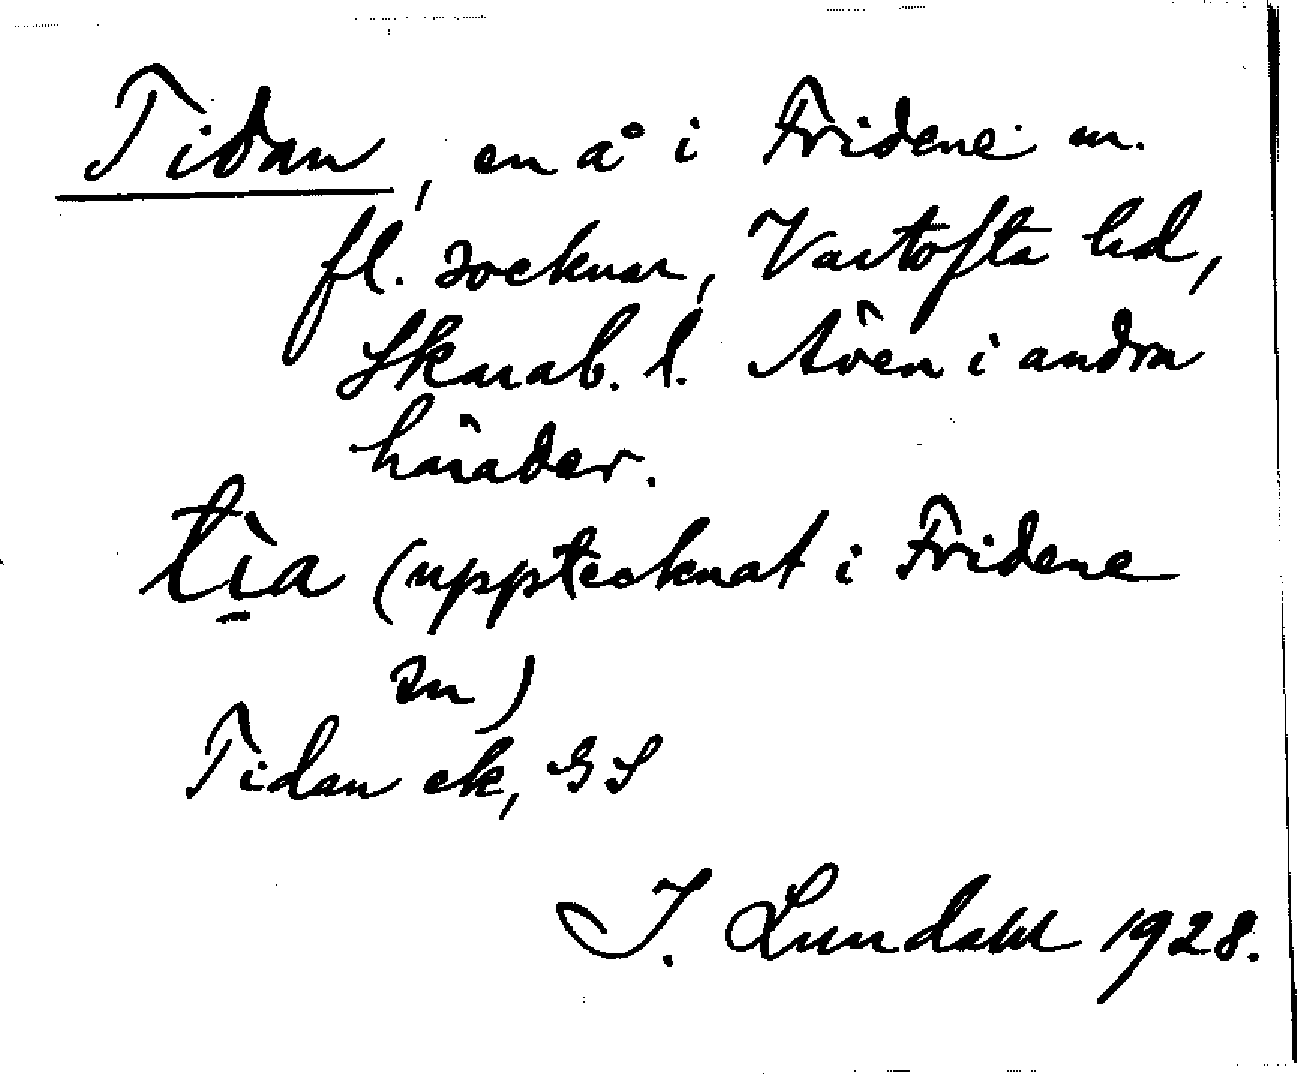 Tidan, en å i Fridene m.
fl. socknar, Vartofta hd,
Skarab. l. Även i andra
härader.
tı̱̀a (upptecknat i Fridene
sn)
Tidan ek, GS
I. Lundahl 1928.